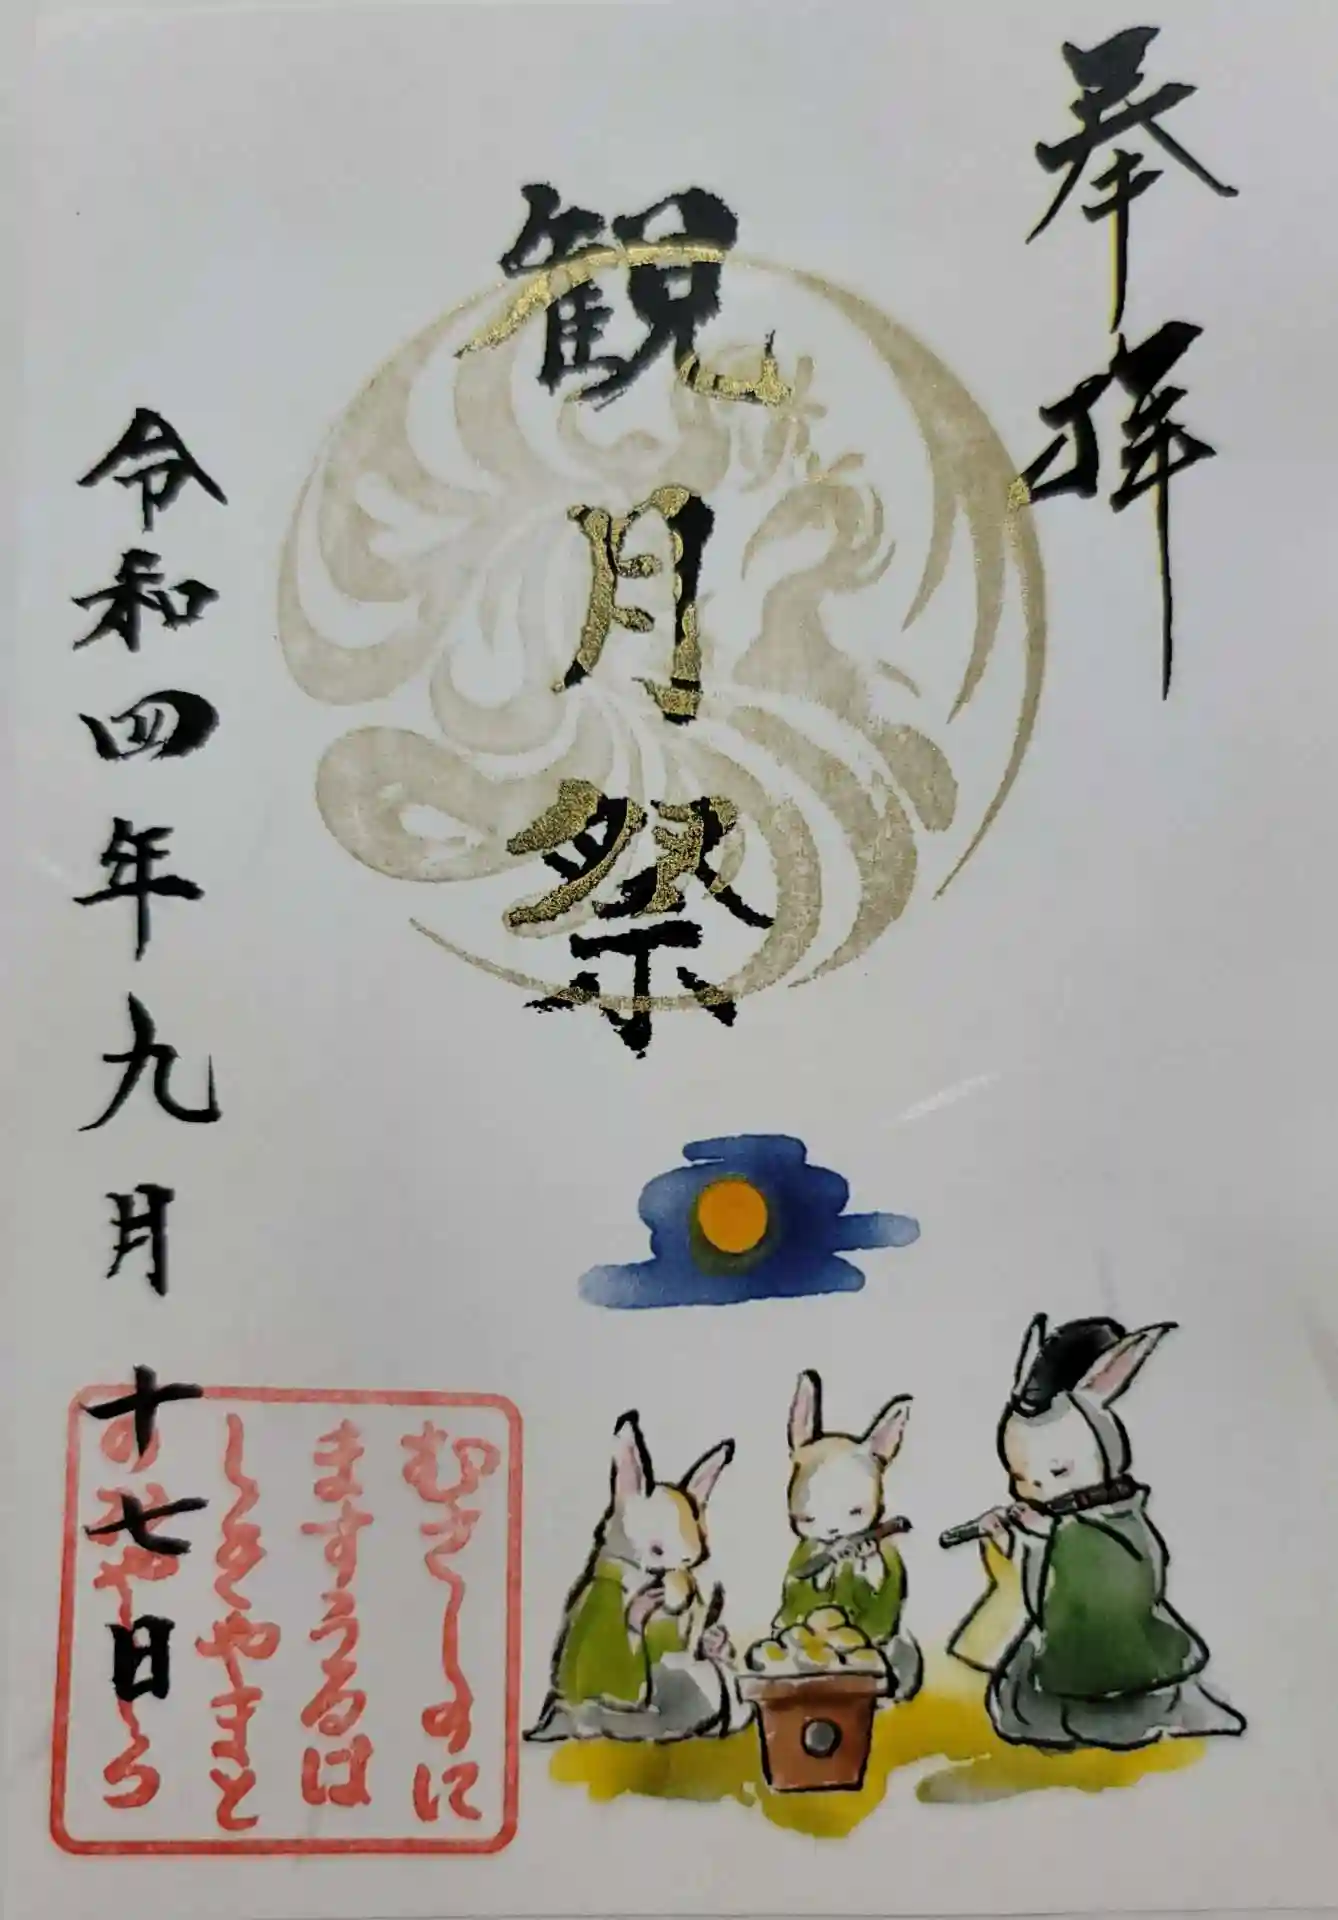 奉拝
観月祭
令和四年九月十七日
むさしのに
ますうるは
しきやまと
のみやしろ